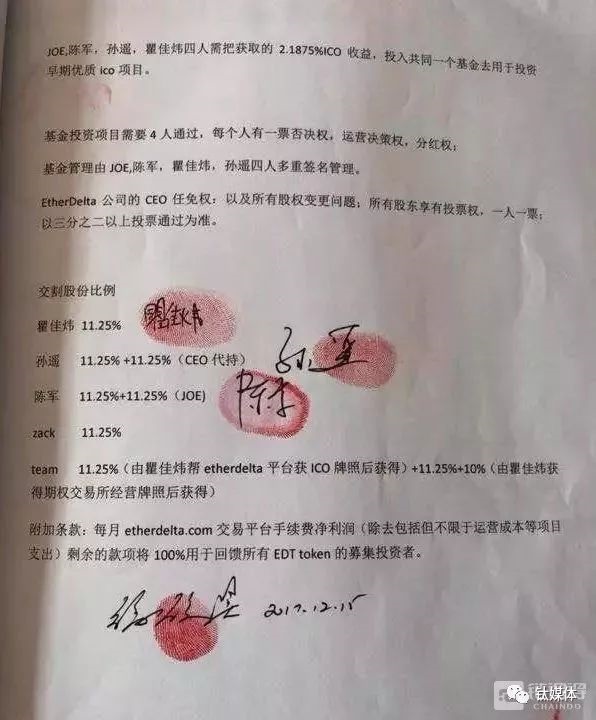 JOE,陈军，孙遥，瞿佳炜四人需把获取的 2.1875%ICO 收益，投入共同一个基金去用于投资
早期优质 ico 项目。
基金投资项目需要 4 人通过，每个人有一票否决权，运营决策权，分红权；
基金管理由 JOE,陈军，瞿佳炜，孙遥四人多重签名管理。
EtherDelta 公司的 CEO 任免权：以及所有股权变更问题；所有股东享有投票权，一人一票；
以三分之二以上投票通过为准。
交割股份比例
瞿佳炜 11.25% 瞿佳炜
孙遥 11.25% +11.25%（CEO 代持） 孙遥
陈军 11.25%+11.25%（JOE) 陈军
zack 11.25%
team 11.25%（由瞿佳炜帮 etherdelta 平台获 ICO 牌照后获得）+11.25%+10%（由瞿佳炜获
得期权交易所经营牌照后获得）
附加条款：每月 etherdelta.com 交易平台手续费净利润（除去包括但不限于运营成本等项目
支出）剩余的款项将 100%用于回馈所有 EDT token 的募集投资者。
2017.12.15
链得得
CHAINDD
钛媒体